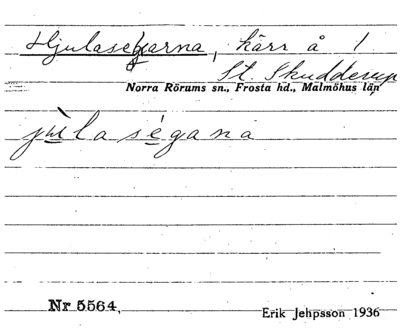 Hjulasegarna, kärr å 1
St. Skudderup
Norra Rörums sn., Frosta hd., Malmöhus län,
jùla ségana
Nr 5564.
Erik Jehpsson 1936